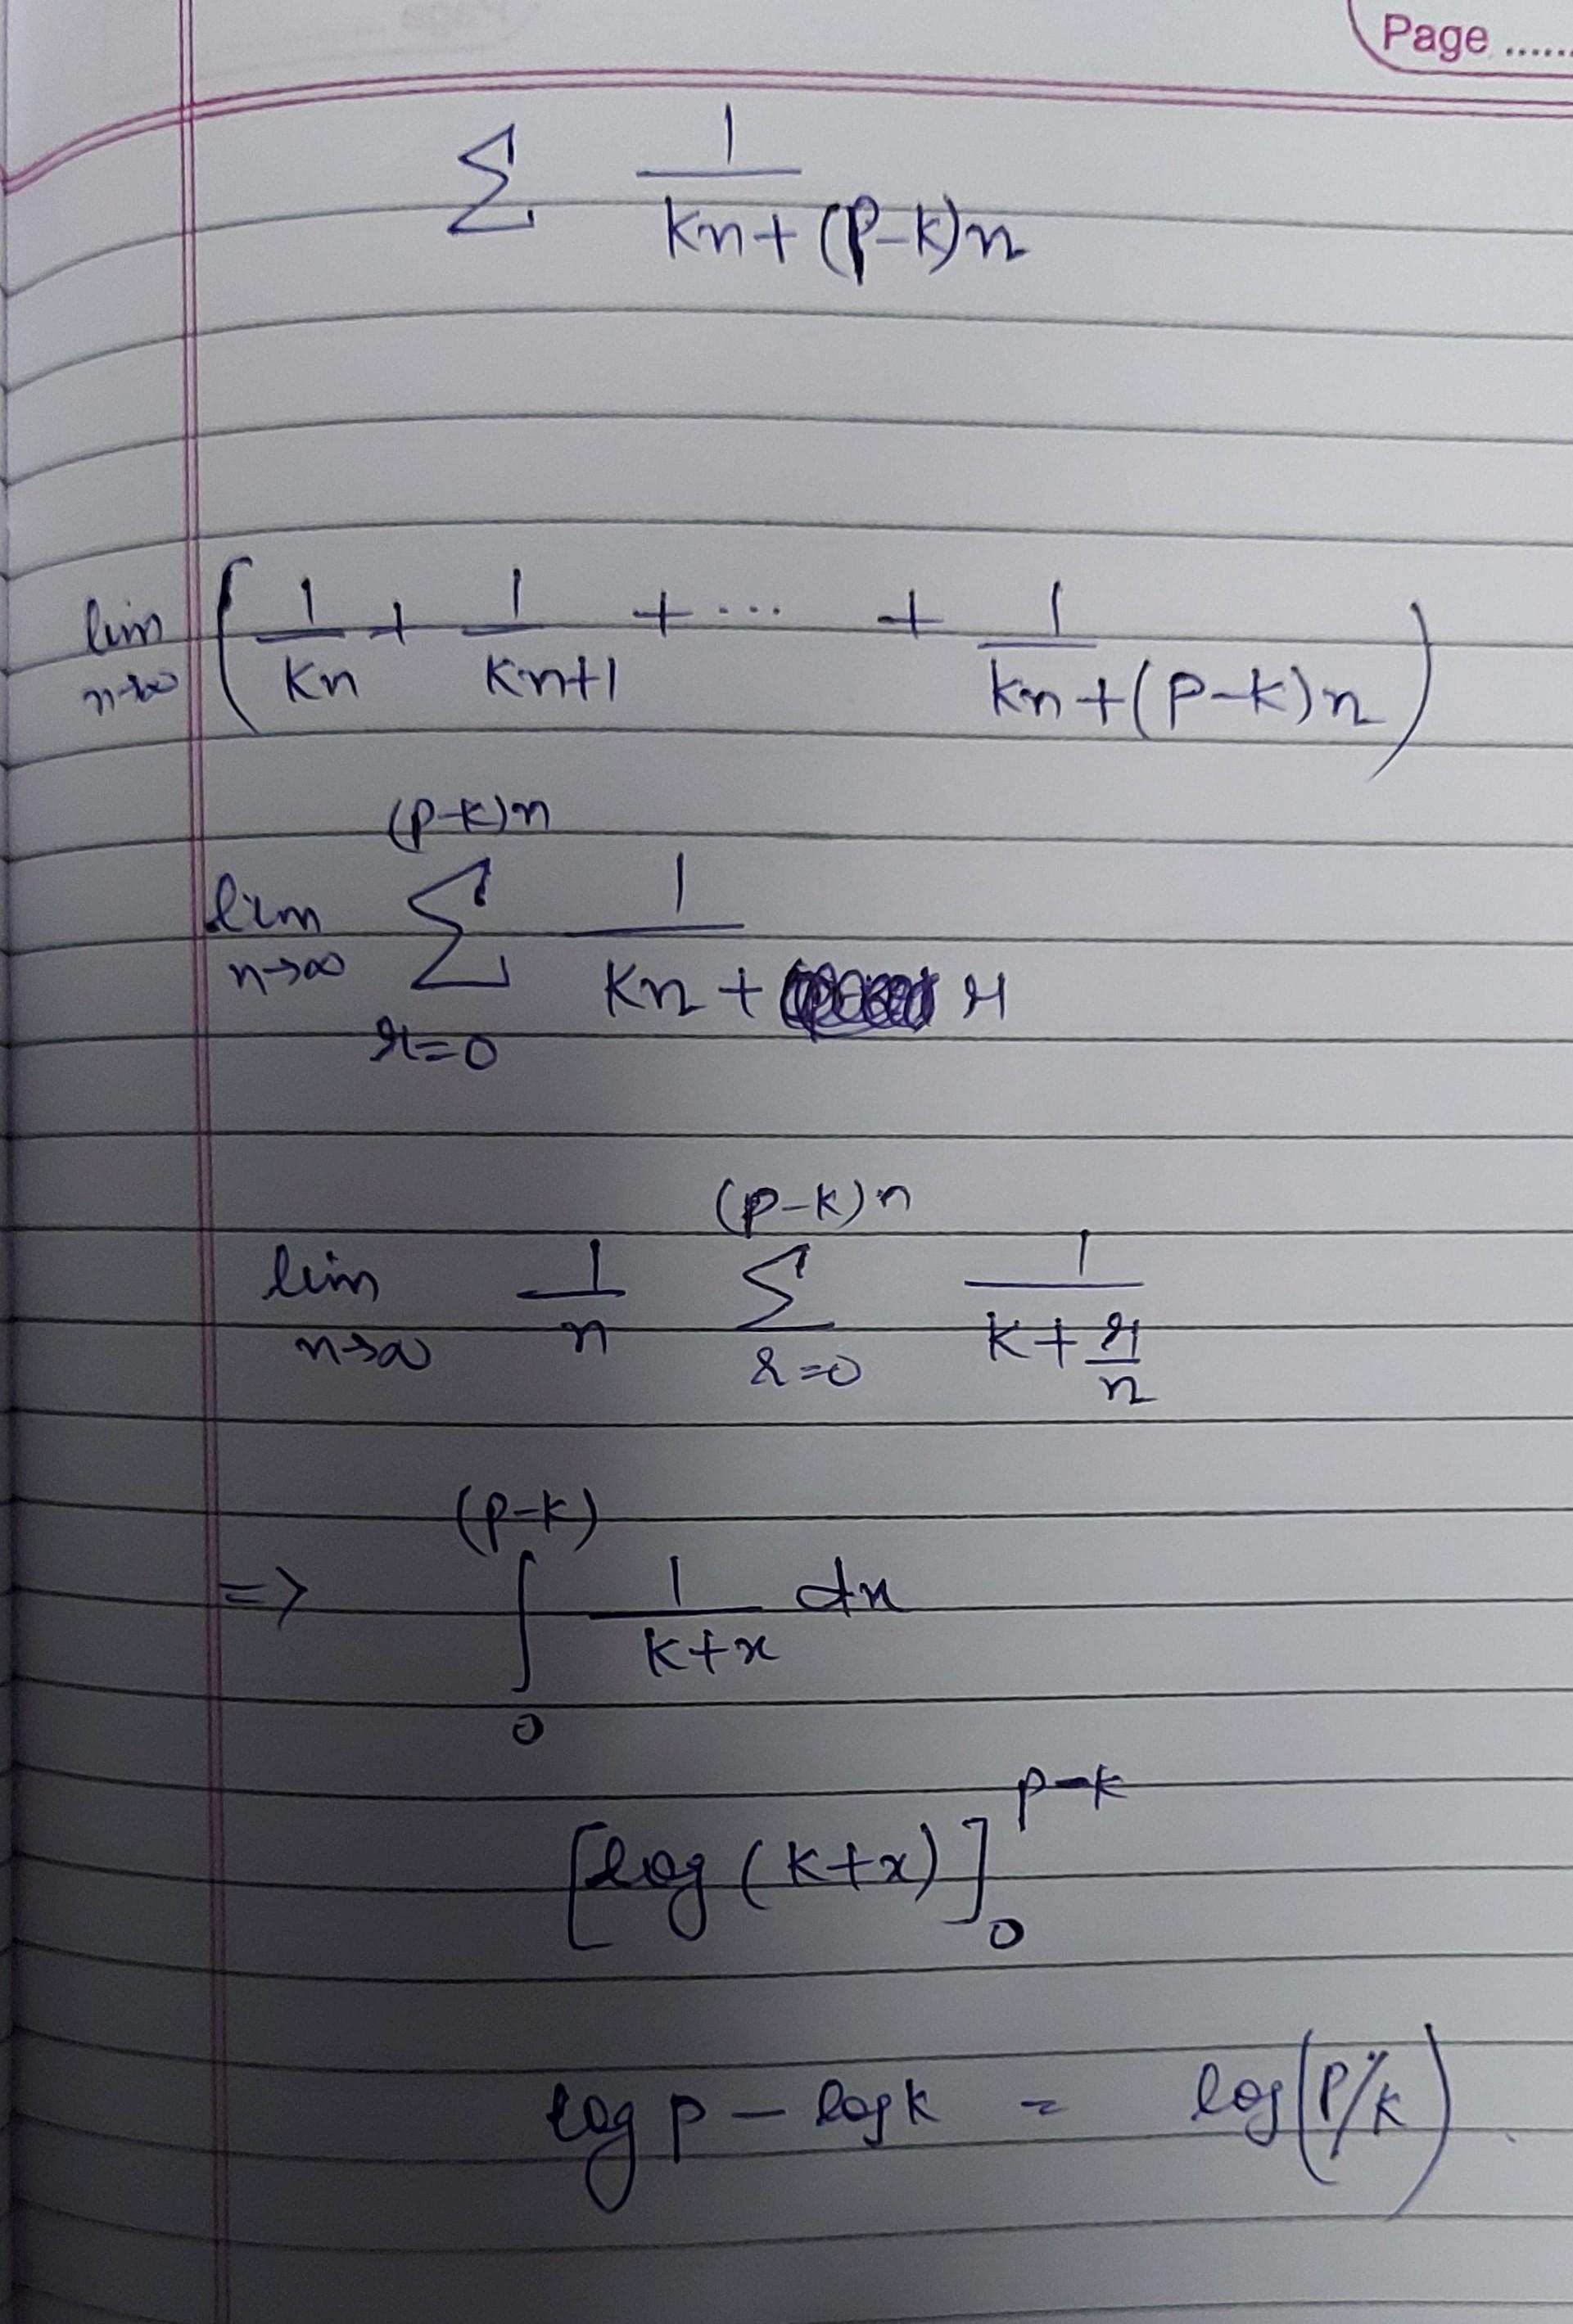 Page ......
Σ 1/(kn+(p-k)n)
lim n→∞ (1/kn + 1/(kn+1) + ... + 1/(kn+(p-k)n))
lim n→∞ Σ r=0 (p-k)n 1/(kn + r)
lim n→∞ 1/n Σ r=0 (p-k)n 1/(k+r/n)
=> ∫ 0 (p-k) 1/(k+x) dx
[log (k+x)] 0 p-k
log p - log k = log(p/k)